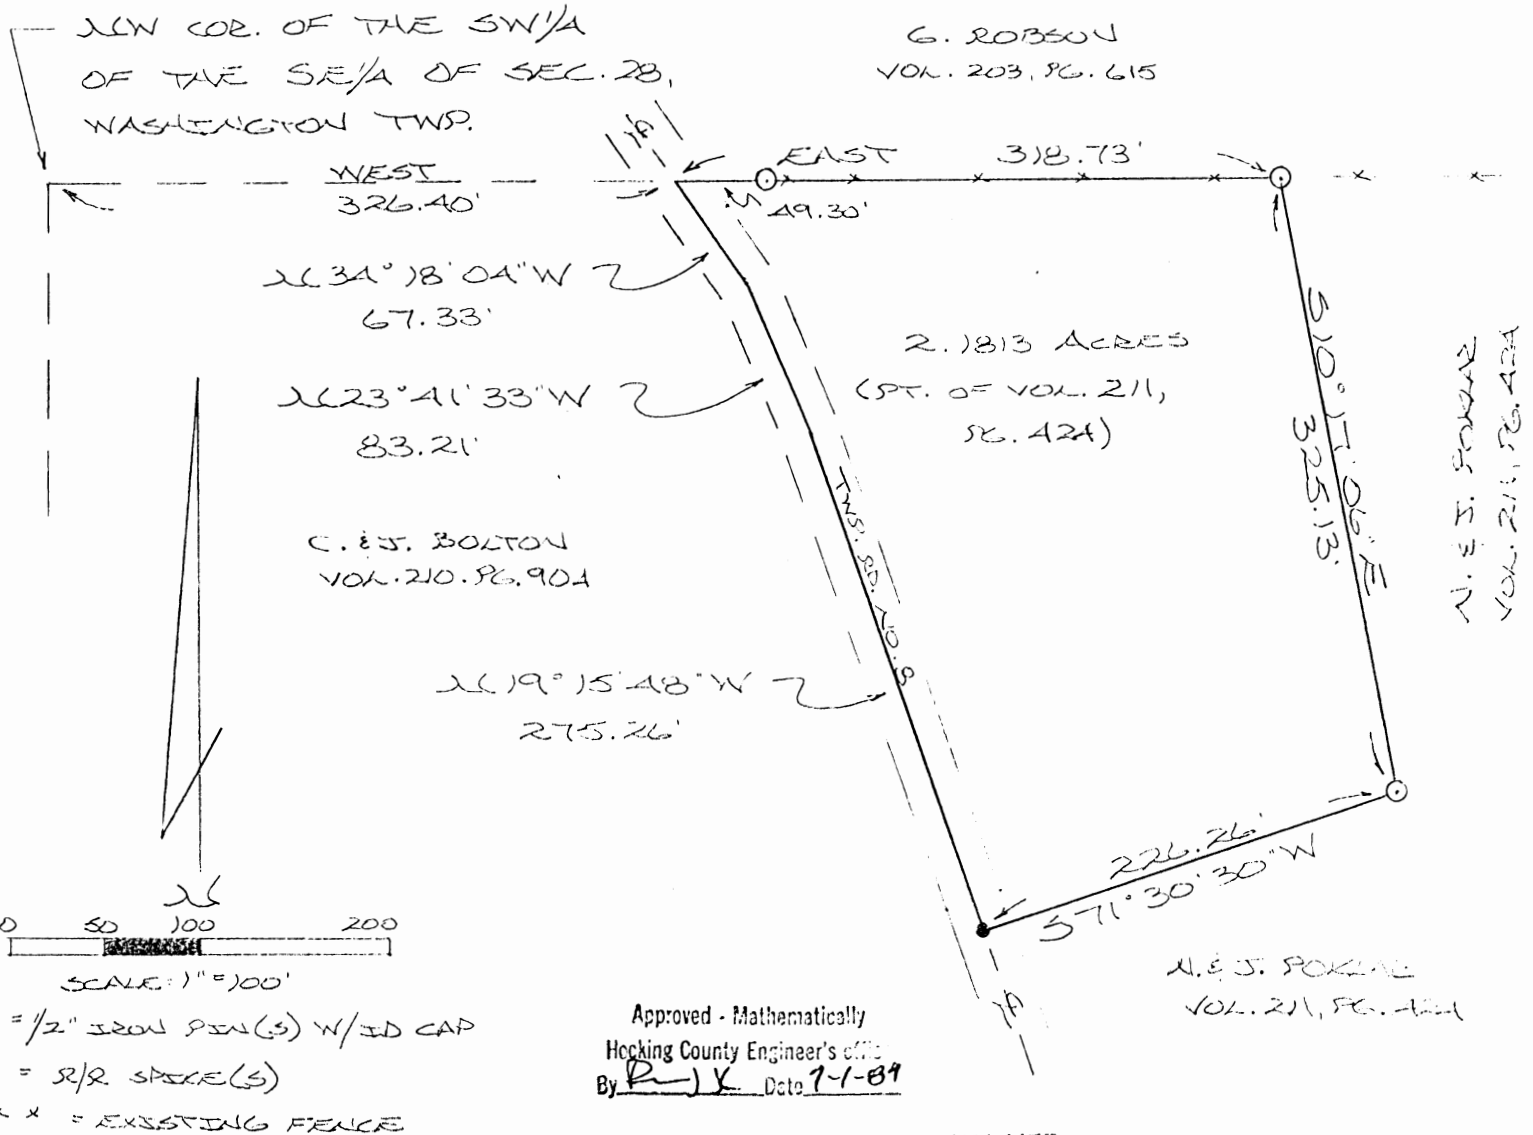 NW COR. OF THE SW1/4
OF THE SE1/4 OF SEC. 28,
WASHINGTON TWP.
G. ROBSON
VOL. 203, PG. 615
WEST
326.40'
EAST 318.73'
49.30'
N 34° 18' 04" W
67.33'
N 23° 41' 33" W
83.21'
2.1813 ACRES
(PT. OF VOL. 211,
PG. 424)
S 10° 17' 06" E
325.13'
VOL. 211, PG. 424
C. & J. BOLTON
VOL. 210. PG. 904
TWP. RD. NO.
N 19° 15' 48" W
275.26'
226.26'
S 71° 30' 30" W
N. & J.
VOL. 211, PG. 424
N
0 50 100 200
SCALE: 1" = 100'
= 1/2" IRON PIN(S) W/ID CAP
= R/R SPIKE(S)
x x = EXISTING FENCE
Approved - Mathematically
Hocking County Engineer's office
By Date